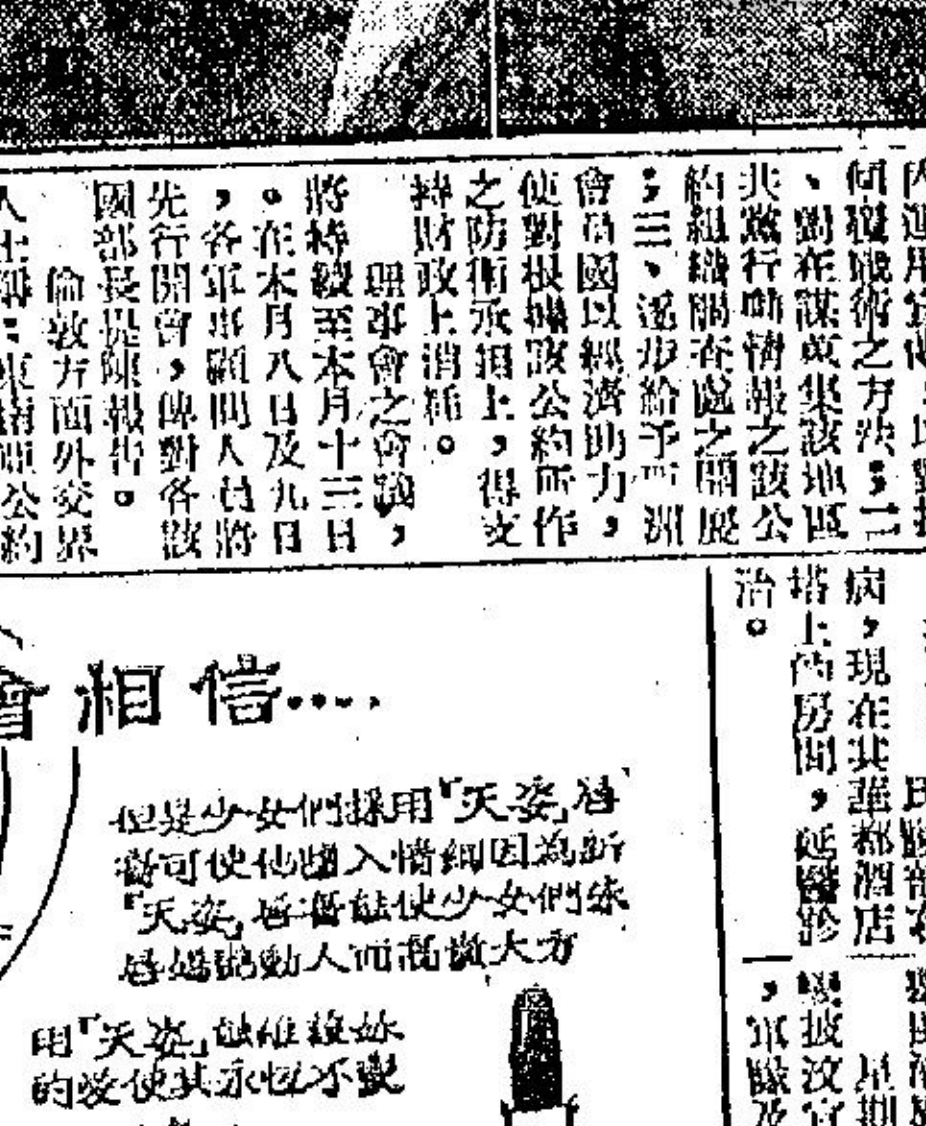 傾覆戰術之方法；二
、對在謀蒐集該地區
共黨行動情報之該公
約組織調查處之開展
；三、逐步給予亞洲
會員國以經濟助力，
使對根據該公約所作
之防衛承担上，得支
持財政上消耗。
理事會之會議，
將持續至本月十三日
。在本月八日及九日
，各軍事顧問人員將
先行開會，俾對各該
國部長提陳報告。
倫敦方面外交界
人士稱：東南亞公約
病，現在其蓮都酒店
塔上的房間，延醫診
治。
會相信....
但是少女們採用『天姿』唇
膏可使他墮入情網因為新
『天姿』唇膏能使少女們朱
唇嬌艷動人而高貴大方
用『天姿』能維護妳
的愛使其永恆不變
星期
披汶官
，軍隊及